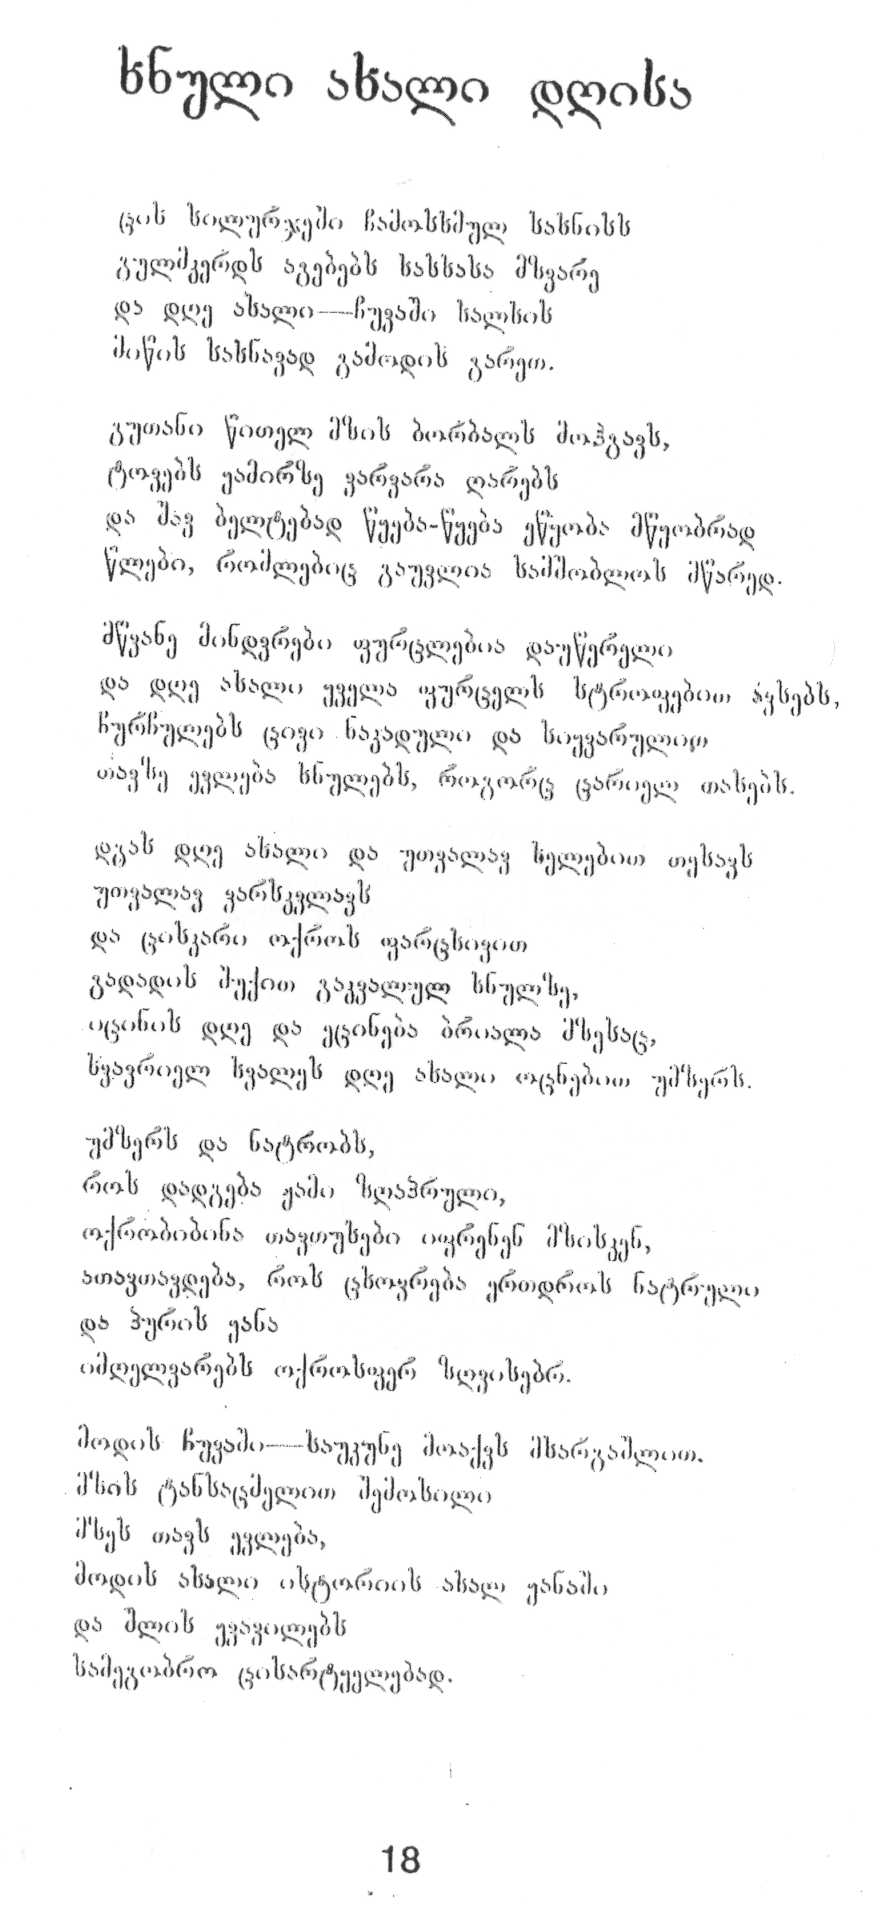 ხნული ახალი დღისა
ცის სილურჯეში ჩამოსხმულ სახნისს
გულმკერდს აგებებს ხასხასა მხვარე
და დღე ახალი—ჩუვაში ხალხის
მიწის სახნავად გამოდის გარეთ.
გუთანი წითელ მზის ბორბალს მოჰგავს,
ტოვებს ყამირზე ვარვარა ღარებს
და შავ ბელტებად წყება-წყება ეწყობა მწყობრად
წლები, რომლებიც გაუვლია სამშობლოს მწარედ.
მწვანე მინდვრები ფურცლებია დაუწერელი
და დღე ახალი ყველა ფურცელს სტროფებით ავსებს,
ჩურჩულებს ცივი ნაკადული და სიყვარულით
თავზე ევლება ხნულებს, როგორც ცარიელ თასებს.
დგას დღე ახალი და უთვალავ ხელებით თესავს
უთვალავ ვარსკვლავს
და ცისკარი ოქროს ფარცხივით
გადადის შუქით გაკვალულ ხნულზე,
იცინის დღე და ეცინება ბრიალა მზესაც,
ხვავრიელ ხვალეს დღე ახალი ოცნებით უმზერს.
უმზერს და ნატრობს,
როს დადგება ჟამი ზღაპრული,
ოქრობიბინა თავთუხები იფრენენ მზისკენ,
ათავთავდება, როს ცხოვრება ერთდროს ნატრული
და პურის ყანა
იმღელვარებს ოქროსფერ ზღვისებრ.
მოდის ჩუვაში—საუკუნე მოაქვს მხარგაშლით.
მზის ტანსაცმელით შემოსილი
მზეს თავს ევლება,
მოდის ახალი ისტორიის ახალ ყანაში
და შლის ყვავილებს
სამეგობრო ცისარტყელებად.
18